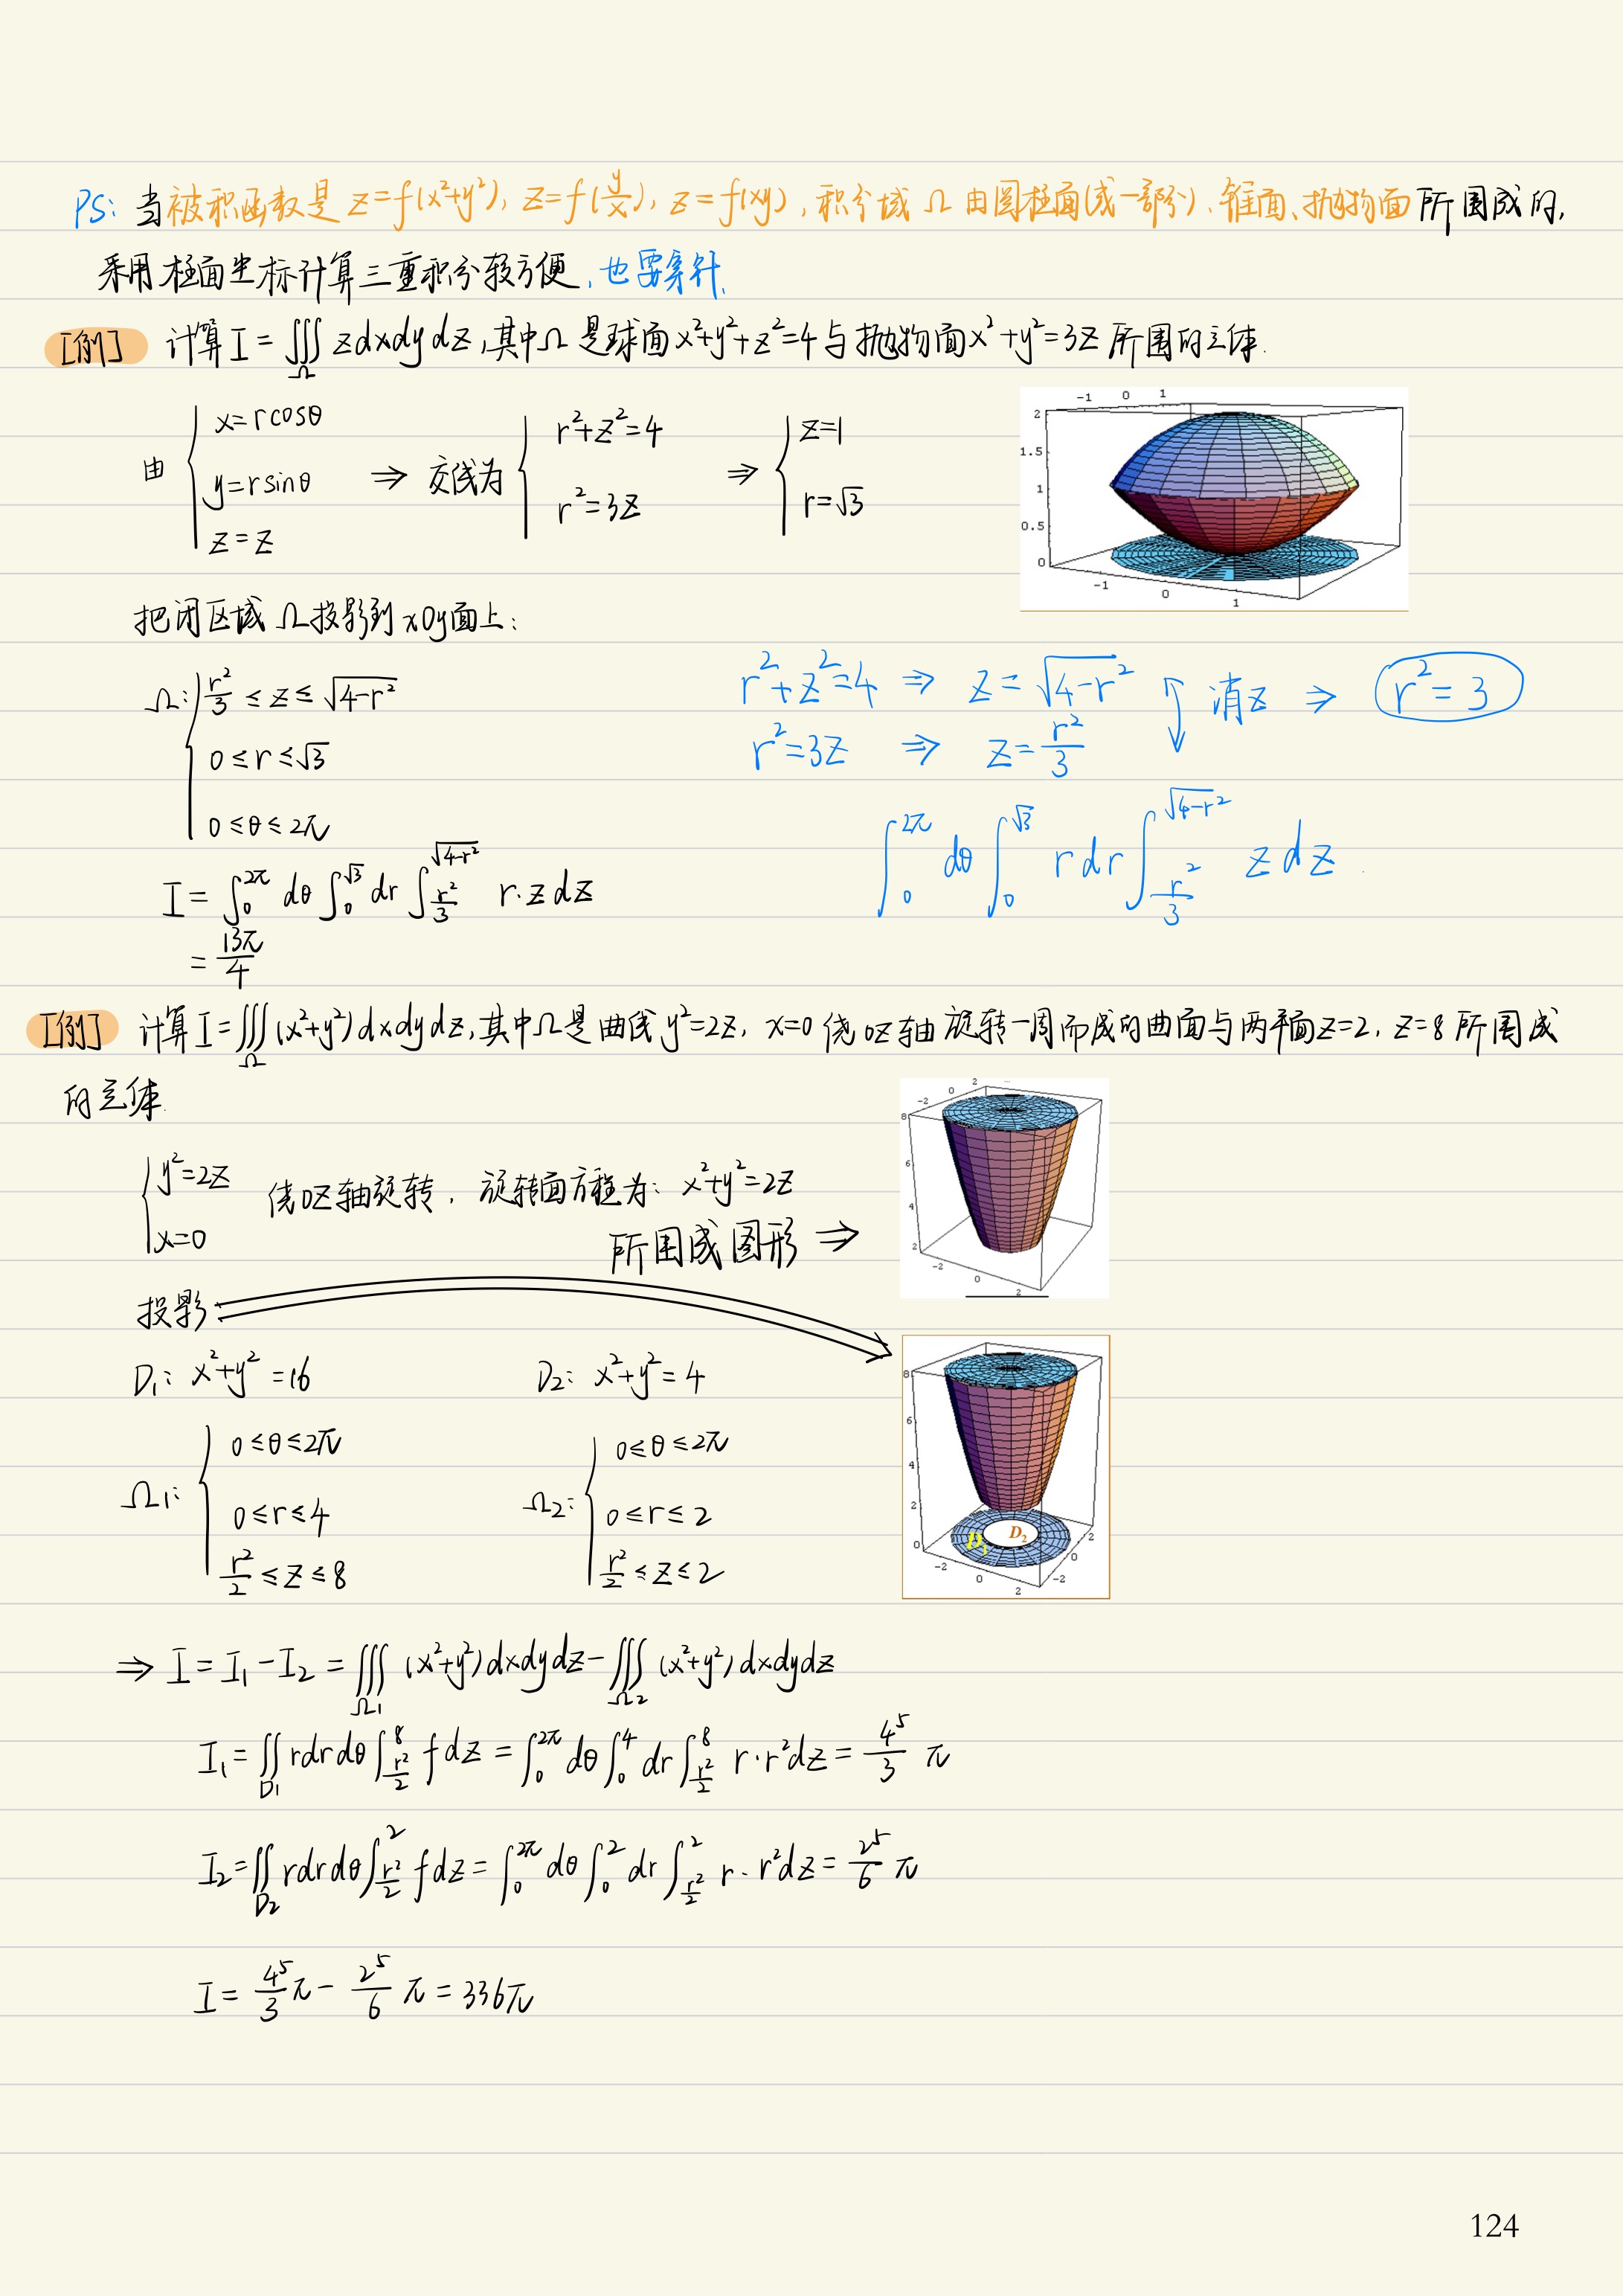 PS: 当被积函数是 z=f(x²+y²), z=f(y/x), z=f(xy), 积分域 Ω 由圆柱面(或一部分)、锥面、抛物面所围成的,
采用柱面坐标计算三重积分较方便, 也要穿针.
[例] 计算 I = ∭_Ω z dxdydz, 其中Ω是球面x²+y²+z²=4与抛物面x²+y²=3z所围的立体.
由 { x=rcosθ  y=rsinθ  z=z ⇒ 交线为 { r²+z²=4  r²=3z ⇒ { z=1  r=√3
-1 0 1
2
1.5
1
0.5
0
-1 0 1
把闭区域Ω投影到xOy面上:
Ω: { r²/3 ≤ z ≤ √(4-r²)
0 ≤ r ≤ √3
0 ≤ θ ≤ 2π
r²+z²=4 ⇒ z=√(4-r²)
r²=3z ⇒ z=r²/3
消z ⇒ r²=3
I = ∫₀^{2π} dθ ∫₀^{√3} dr ∫_{r²/3}^{√(4-r²)} r·z dz
= 13π/4
∫₀^{2π} dθ ∫₀^{√3} r dr ∫_{r²/3}^{√(4-r²)} z dz
[例] 计算 I=∭_Ω (x²+y²)dxdydz, 其中Ω是曲线y²=2z, x=0 绕oz轴旋转一周而成的曲面与两平面z=2, z=8所围成
的立体.
{ y²=2z  x=0 绕oz轴旋转, 旋转面方程为: x²+y²=2z
所围成图形 ⇒
-2 0 2
8
6
4
2
-2 0 2
投影:
D₁: x²+y²=16
D₂: x²+y²=4
8
6
4
2
0
D₁ D₂
-2 0 2
-2 0 2
Ω₁: { 0≤θ≤2π
0≤r≤4
r²/2 ≤ z ≤ 8
Ω₂: { 0≤θ≤2π
0≤r≤2
r²/2 ≤ z ≤ 2
⇒ I = I₁ - I₂ = ∭_{Ω1} (x²+y²)dxdydz - ∭_{Ω2} (x²+y²)dxdydz
I₁ = ∬_{D1} rdrdθ ∫_{r²/2}^{8} f dz = ∫₀^{2π} dθ ∫₀^{4} dr ∫_{r²/2}^{8} r·r²dz = 4⁵/3 π
I₂ = ∬_{D2} rdrdθ ∫_{r²/2}^{2} f dz = ∫₀^{2π} dθ ∫₀^{2} dr ∫_{r²/2}^{2} r·r²dz = 2⁵/6 π
I = 4⁵/3 π - 2⁵/6 π = 336π
124